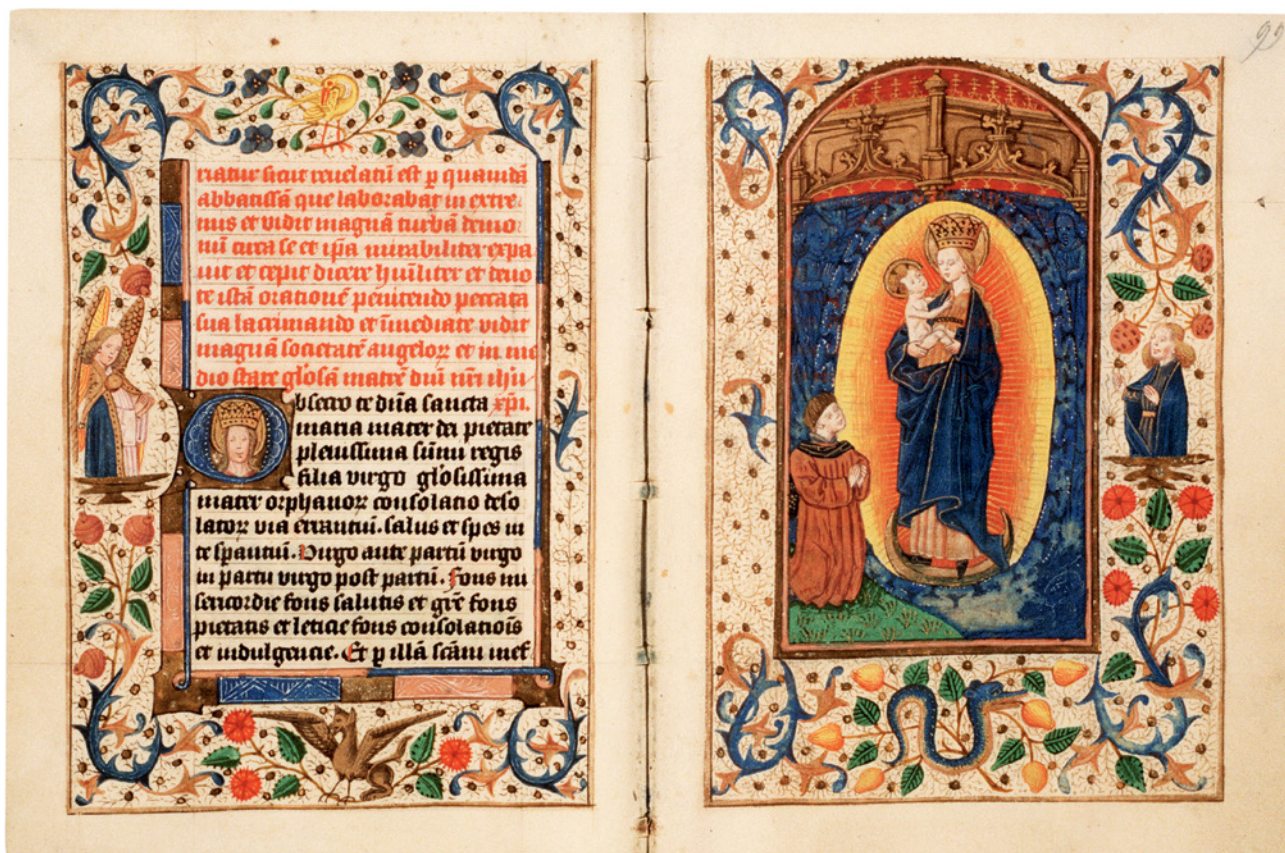 riatur sicut reuelatū est p quandā
abbatissā que laborabat in extre-
mis et vidit magnā turbā demo
nū circa se et ip̄a mirabiliter expa
uit et cepit dicere hūiliter et deuo
te istā orationē penitendo peccata
sua lacrimando et īmediate vidit
magnā societatē angeloꝝ et in me
dio stare gl'osā matrē dn̄i nr̄i ihū
Obsecro te dn̄a sancta xp̄i.
maria mater dei pietate
plenissima sūmi regis
filia virgo gl'osissima
mater orphanoꝝ consolatio deso
latoꝝ via errantiū. salus et spes in
te sp̄antiū. Virgo ante partū virgo
in partu virgo post partū. Fons mi
sericordie fons salutis et gr̄e fons
pietatis et leticie fons consolatiōis
et indulgencie. Et p illā scām inef
99